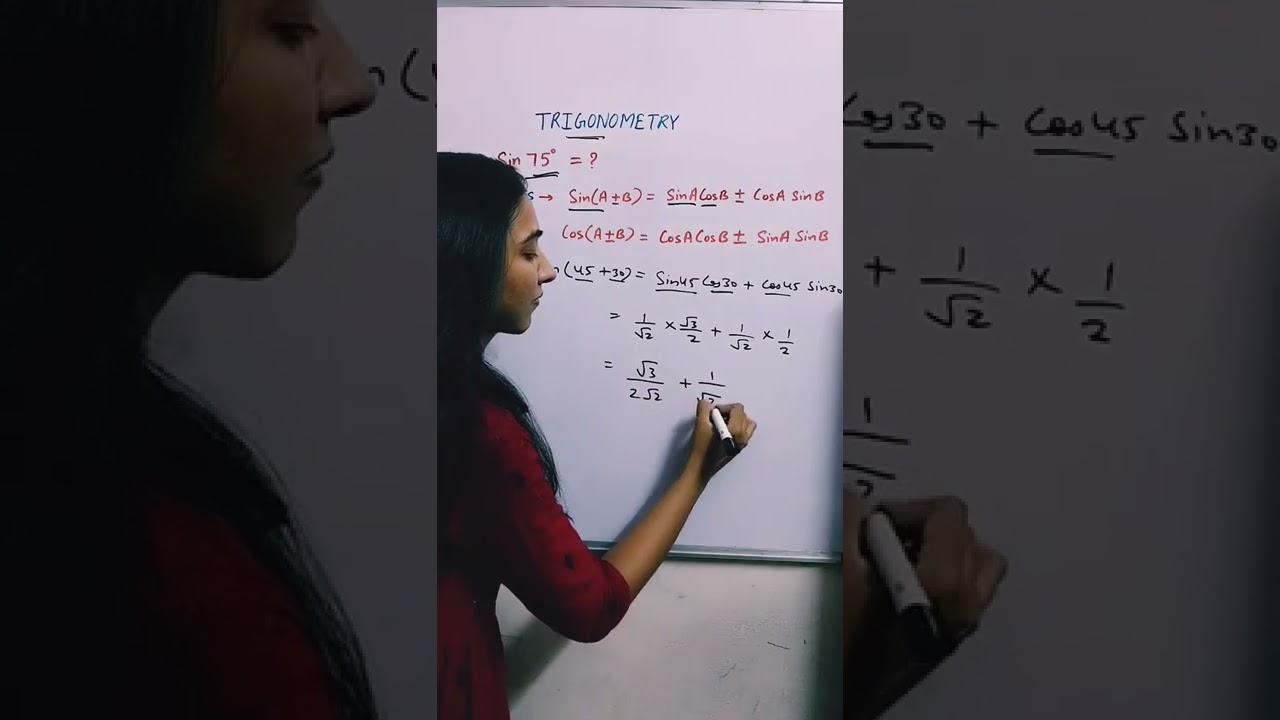 TRIGONOMETRY
Sin 75° = ?
→ Sin(A±B) = SinA CosB ± CosA SinB
Cos(A±B) = CosA CosB ± SinA SinB
(45 + 30) = Sin45 Cos30 + Cos45 Sin30
= 1/√2 × √3/2 + 1/√2 × 1/2
= √3/2√2 + 1/